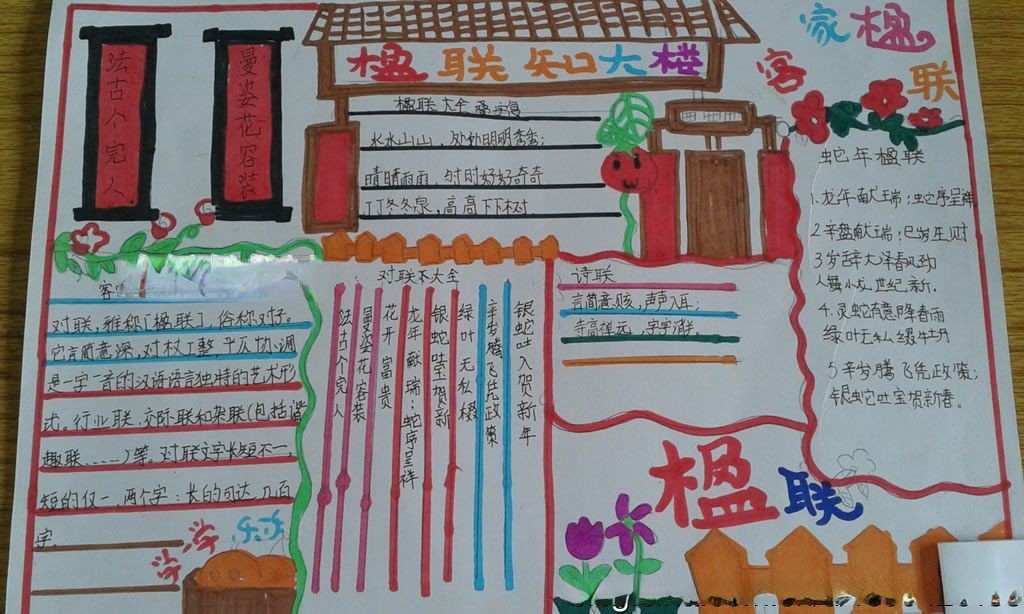 法古个完人
曼姿花容装
楹联知大楼
家楹
客
联
楹联大全
水水山山，处处明明秀秀；
晴晴雨雨，时时好好奇奇
丁丁冬冬泉，高高下下树.
蛇年楹联
1.龙年献瑞；蛇序呈祥
2辛盘献瑞；巳发生财
3岁辞大泽春劲
人舞小龙世纪新.
4.灵蛇有意降春雨
绿叶无私缀牡丹
5辛岁腾飞凭政策；
银蛇吐宝贺新春。
客
对联，雅称「楹联」，俗称对子。
它言简意深，对杖工整，平仄协调
是一字一音的汉语语言独特的艺术形
式。行业联，交际联和杂联(包括谐
趣联……)等。对联文字长短不一，
短的仅一，两个字：长的可达几百
字.
对联不大全
法古个完人
曼姿花容装
花开富贵
龙年献瑞蛇序呈祥
银蛇吐宝贺新
绿叶无私缀
辛岁腾飞凭政策
银蛇吐入贺新年
诗联
言简意赅，声声入耳；
学学
乐乐
楹联